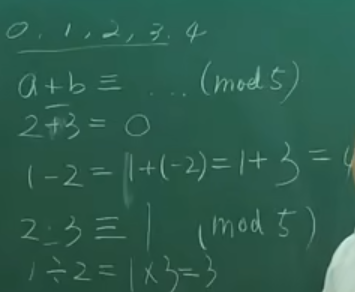 0, 1, 2, 3, 4
a+b ≡ ... (mod 5)
2+3 = 0
1-2 = 1+(-2) = 1+3 = 4
2·3 ≡ 1 (mod 5)
1÷2 = 1×3=3